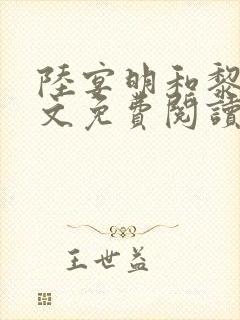 陸宴明和黎
文免費閱讀
王世益